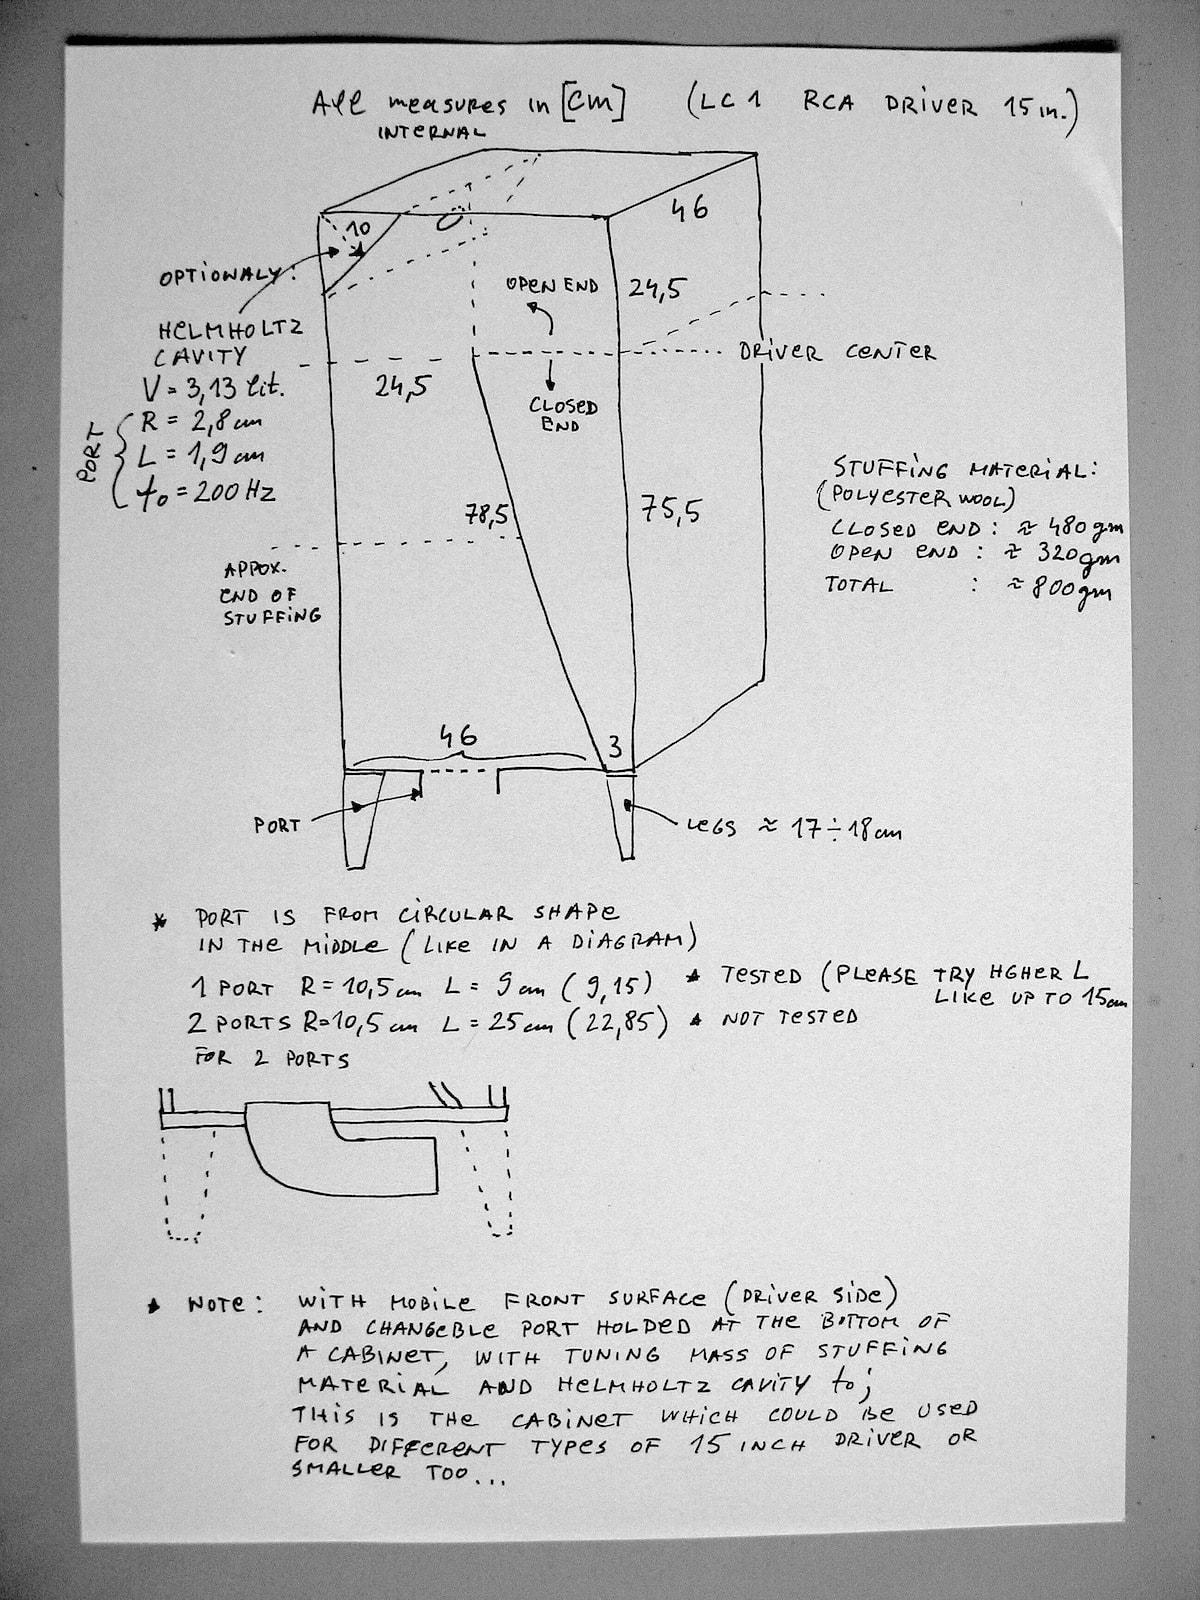 All measures in [cm] (LC1 RCA DRIVER 15 in.)
INTERNAL
46
10
OPTIONALY:
OPEN END
24,5
HELMHOLTZ
CAVITY
V = 3,13 lit.
PORT
R = 2,8 cm
L = 1,9 cm
fo = 200 Hz
DRIVER CENTER
24,5
CLOSED
END
78,5
75,5
STUFFING MATERIAL:
(POLYESTER WOOL)
CLOSED END : ≈ 480 gm
OPEN END : ≈ 320 gm
TOTAL : ≈ 800 gm
APPOX.
END OF
STUFFING
46
3
PORT
LEGS ≈ 17 ÷ 18 cm
* PORT IS FROM CIRCULAR SHAPE
IN THE MIDDLE (LIKE IN A DIAGRAM)
1 PORT R = 10,5 cm L = 9 cm (9,15) * TESTED (PLEASE TRY HGHER L
LIKE UP TO 15 cm
2 PORTS R=10,5 cm L = 25 cm (22,85) * NOT TESTED
FOR 2 PORTS
* NOTE: WITH MOBILE FRONT SURFACE (DRIVER SIDE)
AND CHANGEBLE PORT HOLDED AT THE BOTTOM OF
A CABINET, WITH TUNING MASS OF STUFFING
MATERIAL AND HELMHOLTZ CAVITY to;
THIS IS THE CABINET WHICH COULD BE USED
FOR DIFFERENT TYPES OF 15 INCH DRIVER OR
SMALLER TOO...